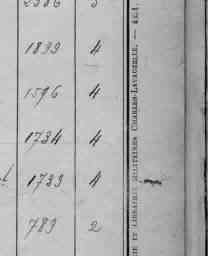 1899 4
1596 4
1734 4
1733 4
789 2
IE ET LIBRAIRIE MILITAIRES CHARLES-LAVAUZELLE. —